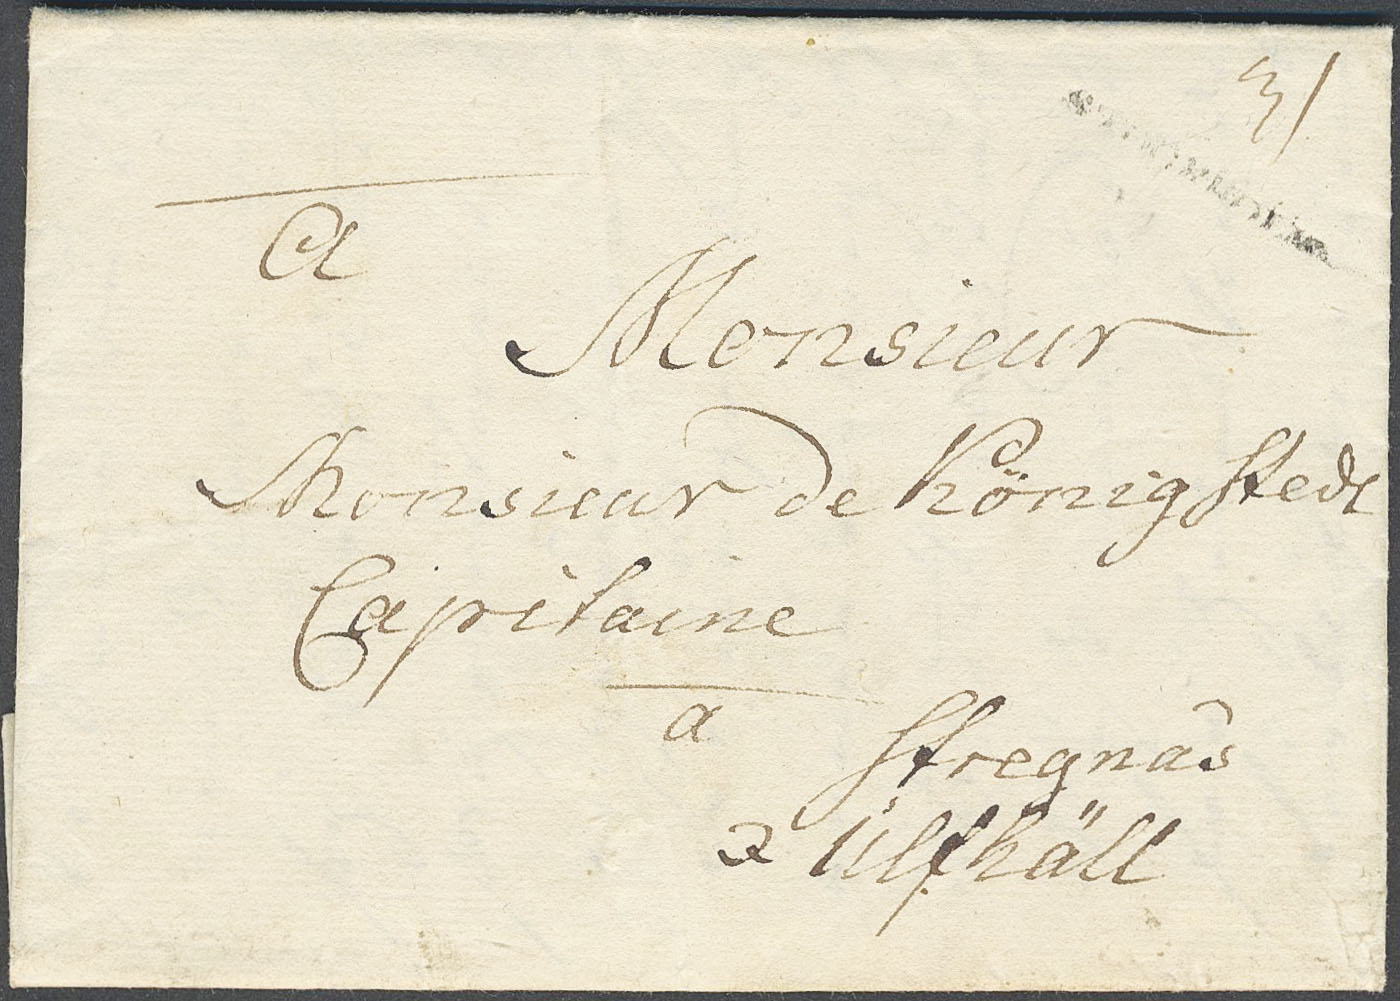 3/
A
Monsieur
Monsieur de Königstedt
Capitaine
a
Stregnäs
a Ulfhäll